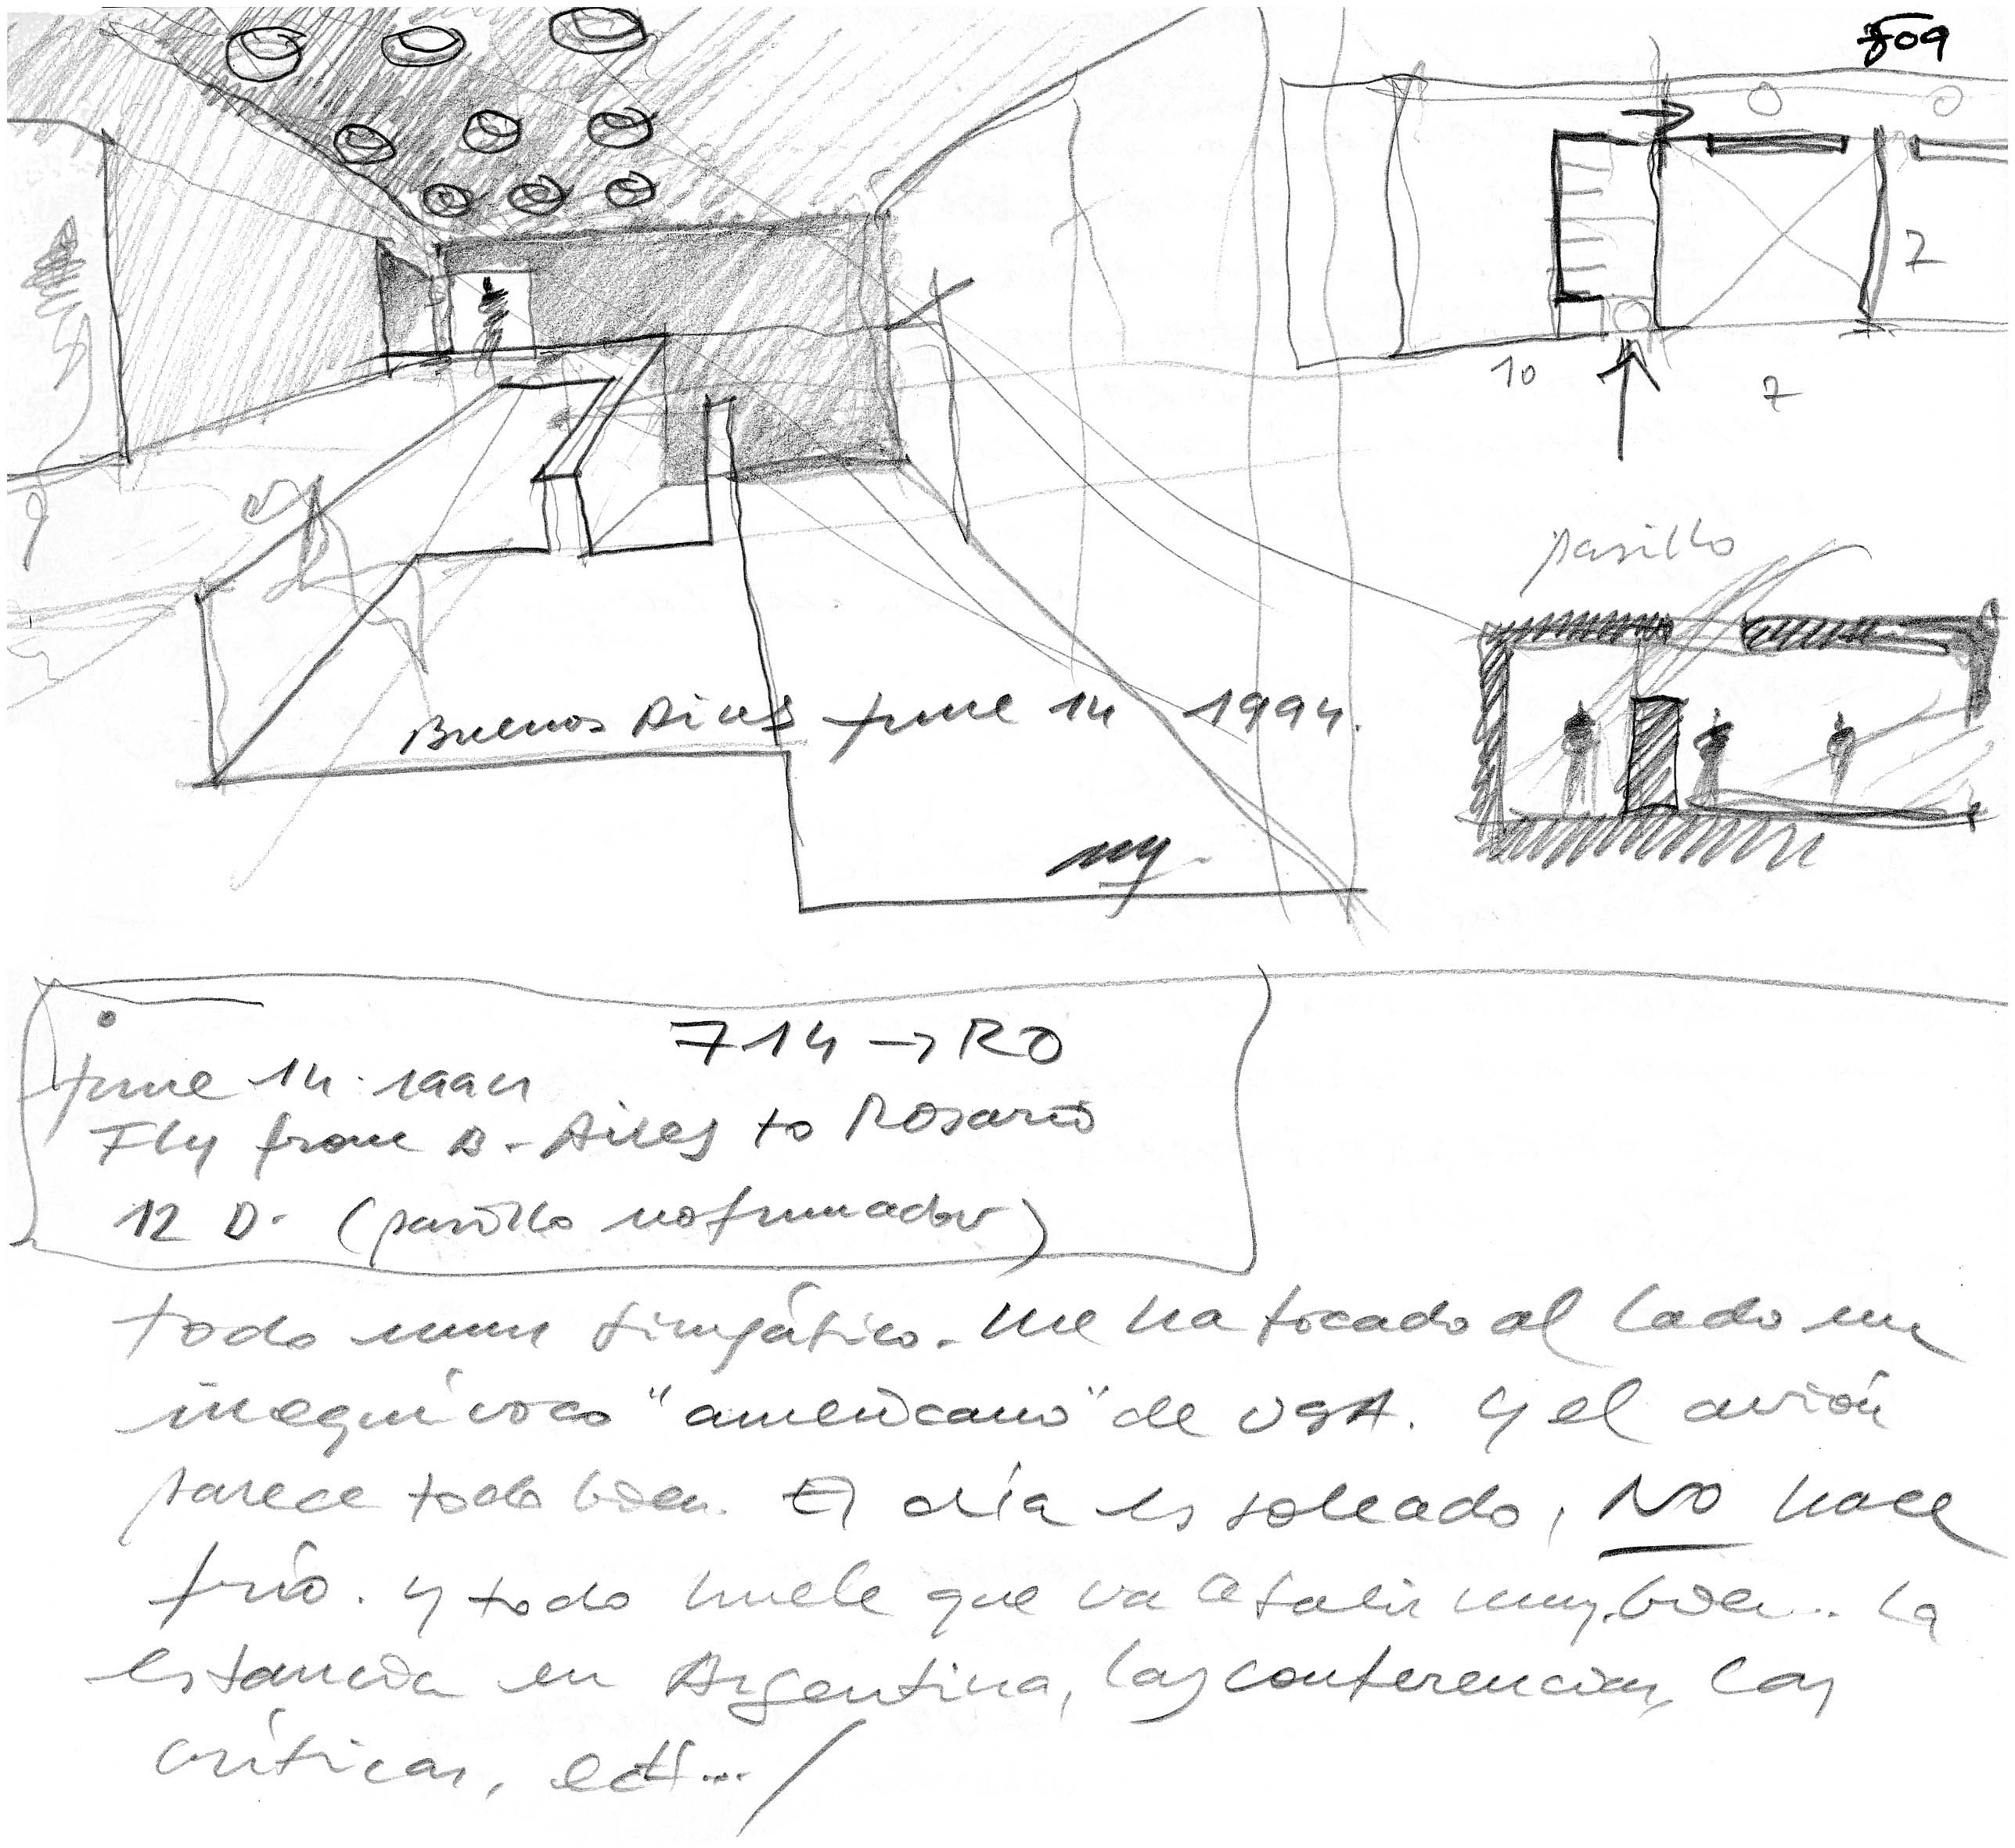 509
7
10
7
pasillo
Buenos Aires June 14 1994.
714 → RO
June 14. 1994
Fly from B. Aires to Rosario
12 D. (pasillo no fumador)
todo muy simpático. Me ha tocado al lado un
inequívoco "americano" de USA. Y el avión
parece todo bien. El día es soleado, NO hace
frío. y todo huele que va a salir muy bien.. la
estancia en Argentina, las conferencias, las
críticas, ect...